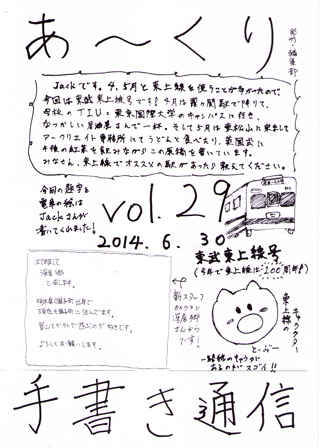 発行・編集部
あ〜くり
Jackです。4、5月と東上線を使うことが多かったので、
今回は東武東上線号です?4月は霞ヶ関駅で降りて、
母校のTIU=東京国際大学のキャンパスに行き、
なつかしい居酒屋さんで一杯。そして5月は東松山に来まして
アークリエイト事務所にてうどんと食べたり、英國式に
午後の紅茶を飲みながらこの原稿を書いています。
みなさん、東上線でオススメの駅があったら教えてください。
今回の題字と
電車の絵は
Jackさんが
書いてくれました!
vol.29
2014.6.30
東武東上線号
(今年で東上線は100周年!)
はじめまして
と申します。
栃木県の益子町出身で
現在も益子町に住んでます。
よろしくお願いします。
新スタッフ
カメラマン
さんから
です!
キャラクター
東上線の
とーぶー
一路線のキャラが
あるのがスゴイ!!
手書き通信